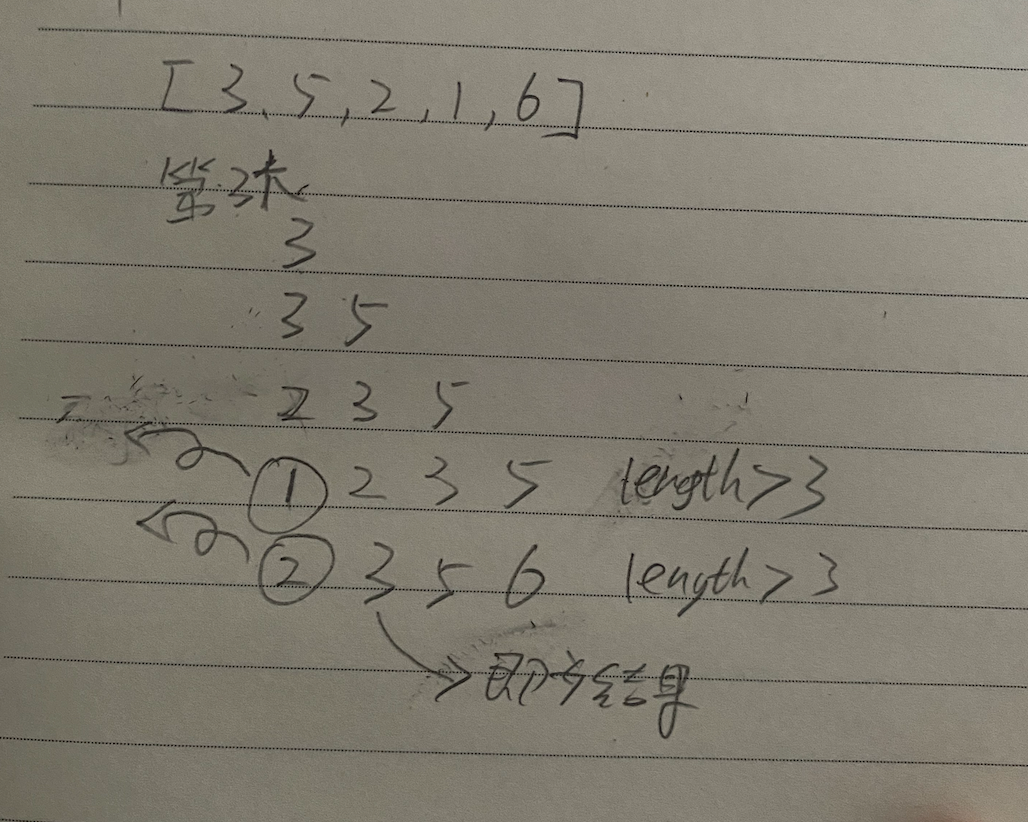 [3,5,2,1,6]
第3大
3
3 5
2 3 5
① 2 3 5 length>3
② 3 5 6 length>3
即为结果